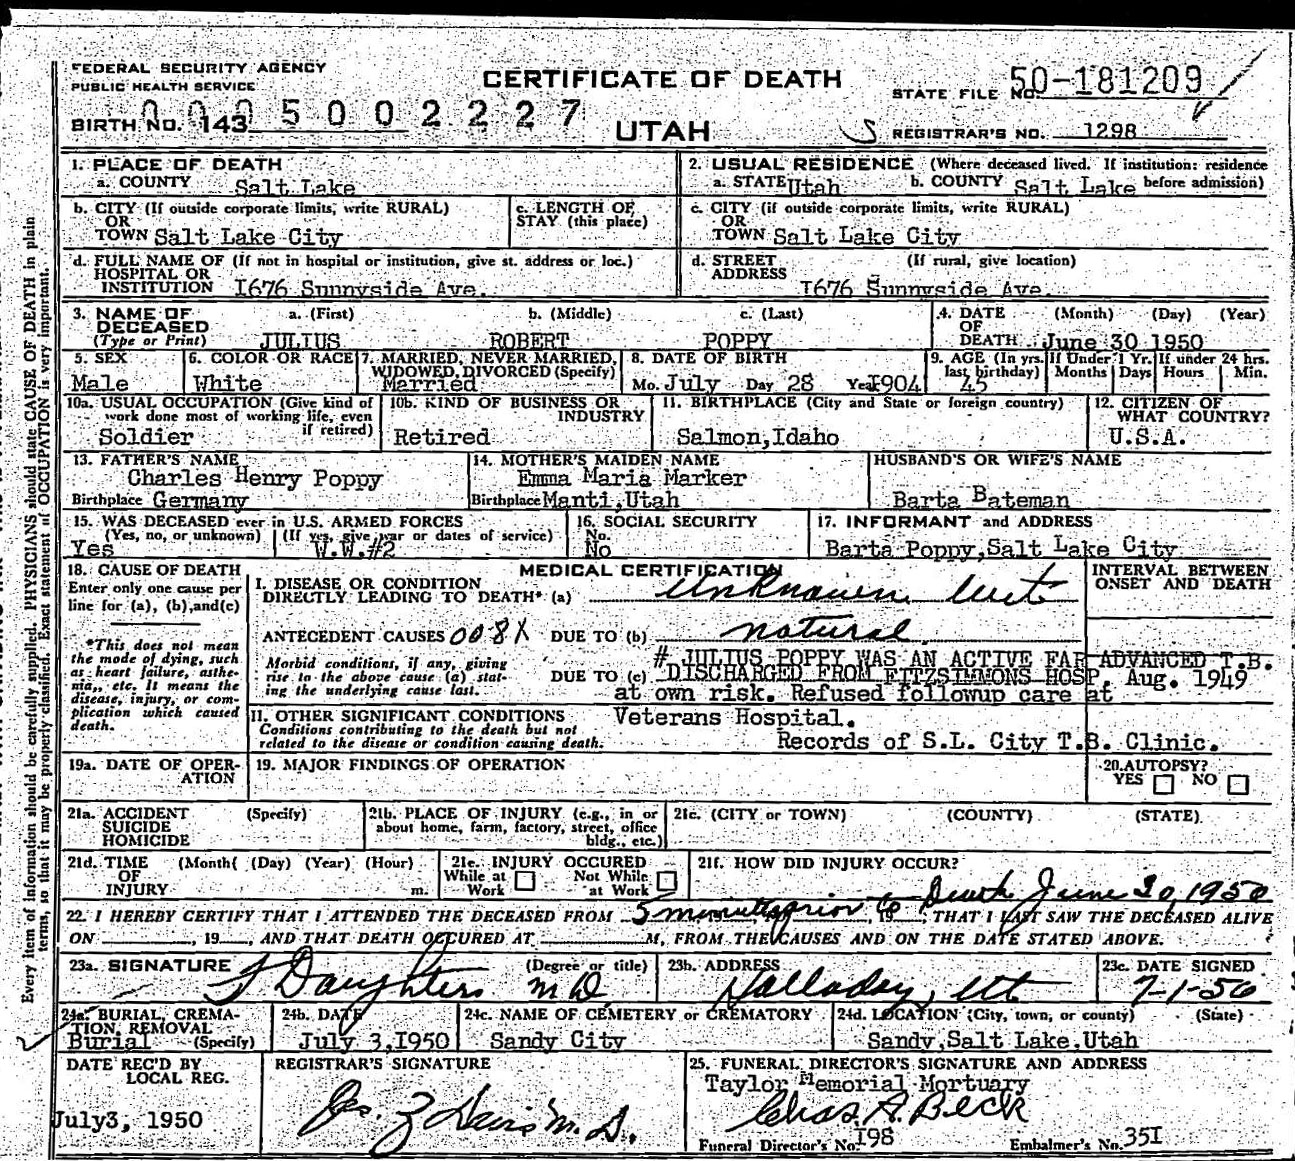 FEDERAL SECURITY AGENCY
PUBLIC HEALTH SERVICE
CERTIFICATE OF DEATH
UTAH
STATE FILE NO. 50-181209
0005002227
BIRTH NO. 143
REGISTRAR'S NO. 1298
1. PLACE OF DEATH
a. COUNTY Salt Lake
2. USUAL RESIDENCE (Where deceased lived. If institution: residence before admission)
a. STATE Utah b. COUNTY Salt Lake
b. CITY (If outside corporate limits, write RURAL)
OR
TOWN Salt Lake City
c. LENGTH OF
STAY (this place)
c. CITY (if outside corporate limits, write RURAL)
OR
TOWN Salt Lake City
d. FULL NAME OF (If not in hospital or institution, give st. address or loc.)
HOSPITAL OR
INSTITUTION 1676 Sunnyside Ave.
d. STREET (If rural, give location)
ADDRESS
1676 Sunnyside Ave.
3. NAME OF
DECEASED
(Type or Print)
a. (First) b. (Middle) c. (Last)
JULIUS ROBERT POPPY
4. DATE (Month) (Day) (Year)
OF
DEATH June 30 1950
5. SEX
Male
6. COLOR OR RACE
White
7. MARRIED, NEVER MARRIED,
WIDOWED, DIVORCED (Specify)
Married
8. DATE OF BIRTH
Mo. July Day 28 Year 1904
9. AGE (In yrs.
last birthday)
45
If Under 1 Yr.
Months Days
If under 24 hrs.
Hours Min.
10a. USUAL OCCUPATION (Give kind of
work done most of working life, even
if retired)
Soldier
10b. KIND OF BUSINESS OR
INDUSTRY
Retired
11. BIRTHPLACE (City and State or foreign country)
Salmon,Idaho
12. CITIZEN OF
WHAT COUNTRY?
U.S.A.
13. FATHER'S NAME
Charles Henry Poppy
Birthplace Germany
14. MOTHER'S MAIDEN NAME
Emma Maria Marker
Birthplace Manti,Utah
HUSBAND'S OR WIFE'S NAME
Barta Bateman
15. WAS DECEASED ever in U.S. ARMED FORCES
(Yes, no, or unknown) (If yes, give war or dates of service)
Yes W.W.#2
16. SOCIAL SECURITY
No.
No
17. INFORMANT and ADDRESS
Barta Poppy,Salt Lake City
18. CAUSE OF DEATH
Enter only one cause per
line for (a), (b),and(c)
*This does not mean
the mode of dying, such
as heart failure, asthe-
nia,, etc. It means the
disease, injury, or com-
plication which caused
death.
MEDICAL CERTIFICATION
INTERVAL BETWEEN
ONSET AND DEATH
I. DISEASE OR CONDITION
DIRECTLY LEADING TO DEATH* (a) Unknown but
ANTECEDENT CAUSES 008X DUE TO (b) natural
Morbid conditions, if any, giving
rise to the above cause (a) stat-
ing the underlying cause last.
DUE TO (c)
# JULIUS POPPY WAS AN ACTIVE FAR ADVANCED T.B.
DISCHARGED FROM FITZSIMMONS HOSP. Aug. 1949
at own risk. Refused followup care at
Veterans Hospital.
Records of S.L. City T.B. Clinic.
II. OTHER SIGNIFICANT CONDITIONS
Conditions contributing to the death but not
related to the disease or condition causing death.
19a. DATE OF OPER-
ATION
19. MAJOR FINDINGS OF OPERATION
20. AUTOPSY?
YES NO
21a. ACCIDENT (Specify)
SUICIDE
HOMICIDE
21b. PLACE OF INJURY (e.g., in or
about home, farm, factory, street, office
bldg., etc.)
21c. (CITY or TOWN) (COUNTY) (STATE)
21d. TIME (Month( (Day) (Year) (Hour)
OF
INJURY m.
21e. INJURY OCCURED
While at Work Not While at Work
21f. HOW DID INJURY OCCUR?
5 minutes prior to Death June 30, 1950
22. I HEREBY CERTIFY THAT I ATTENDED THE DECEASED FROM , 19 , THAT I LAST SAW THE DECEASED ALIVE
ON , 19 , AND THAT DEATH OCCURED AT M, FROM THE CAUSES AND ON THE DATE STATED ABOVE.
23a. SIGNATURE (Degree or title)
Daughters M.D.
23b. ADDRESS
Holladay, Ut
23c. DATE SIGNED
7-1-50
24a. BURIAL, CREMA-
TION, REMOVAL
Burial (Specify)
24b. DATE
July 3,1950
24c. NAME OF CEMETERY or CREMATORY
Sandy City
24d. LOCATION (City, town, or county) (State)
Sandy,Salt Lake,Utah
DATE REC'D BY
LOCAL REG.
July3, 1950
REGISTRAR'S SIGNATURE
25. FUNERAL DIRECTOR'S SIGNATURE AND ADDRESS
Taylor Memorial Mortuary
Chas. A. Beck
Funeral Director's No. 198 Embalmer's No. 351
Every item of information should be carefully supplied. PHYSICIANS should state CAUSE OF DEATH in plain
terms, so that it may be properly classified. Exact statement of OCCUPATION is very important.